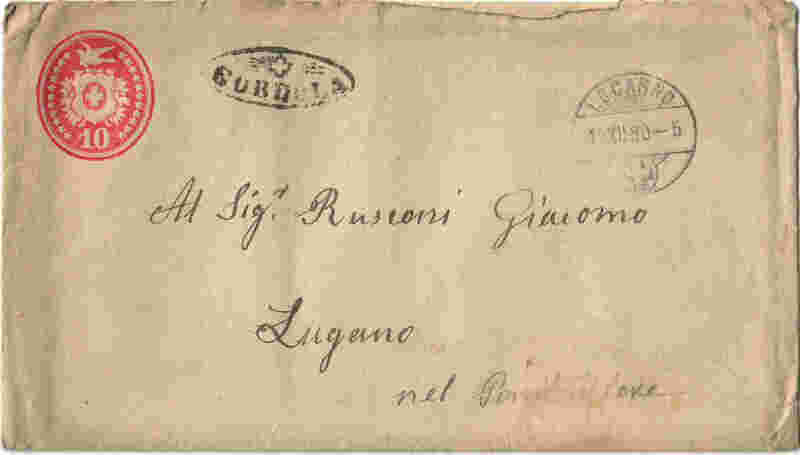 10
GORDOLA
LOCARNO
XII 80-5
Al Sig.r Rusconi Giacomo
Lugano
nel